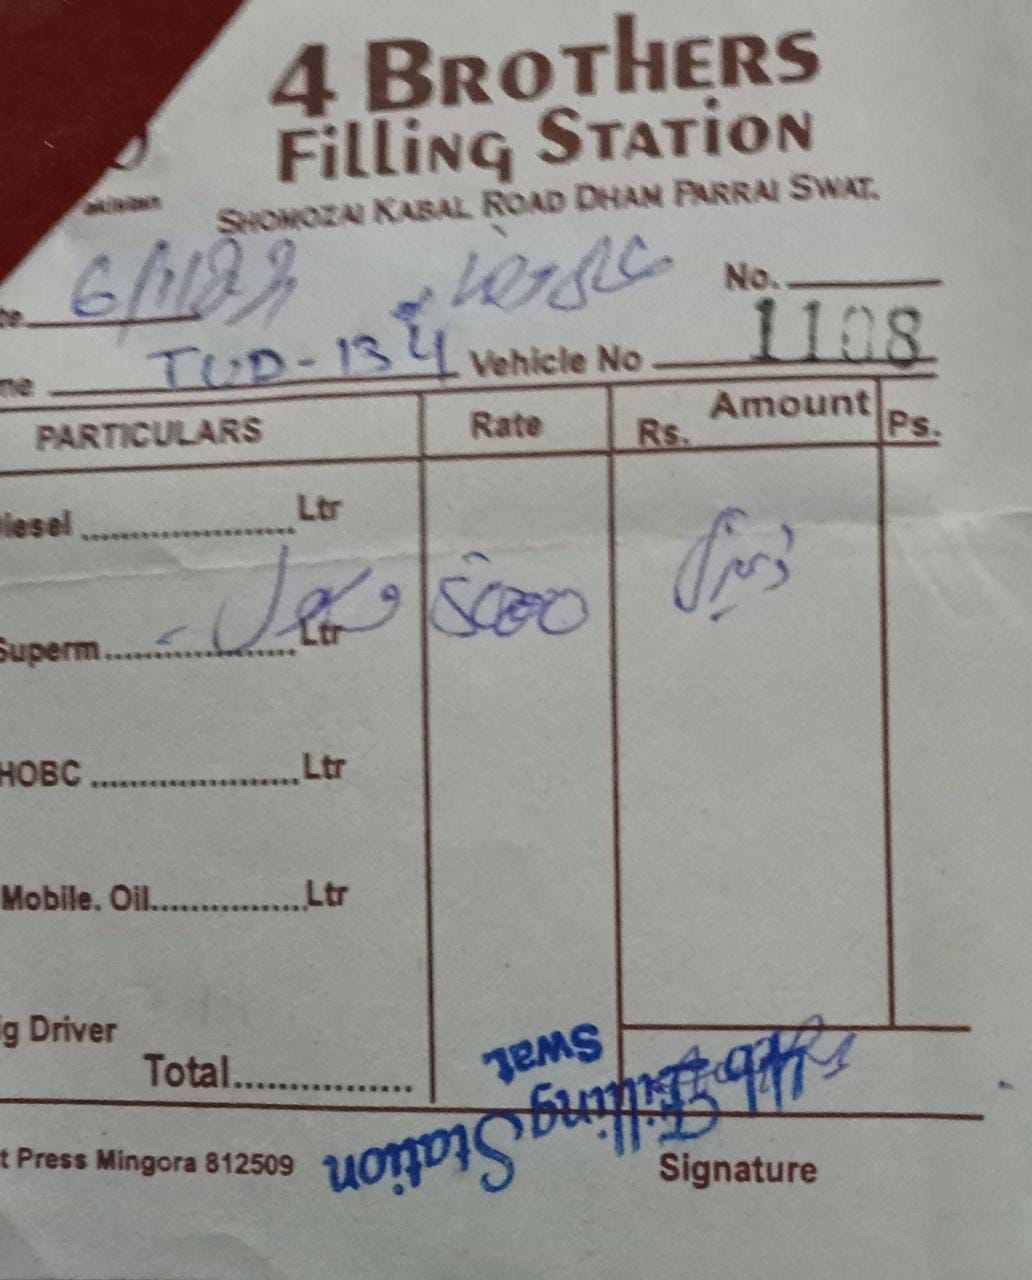 4 BROTHERS
Filling STATION
SHOMOZAI KABAL ROAD DHAM PARRAI SWAT.
No.
6/11/23
TUD-134 Vehicle No 1108
PARTICULARS Rate Rs. Amount Ps.
iesel ..................... Ltr
ڈیزل
Superm ................... Ltr 5000
HOBC ..................... Ltr
Mobile. Oil ................ Ltr
g Driver
Total ................
4b Filling Station
Swat
t Press Mingora 812509
Signature